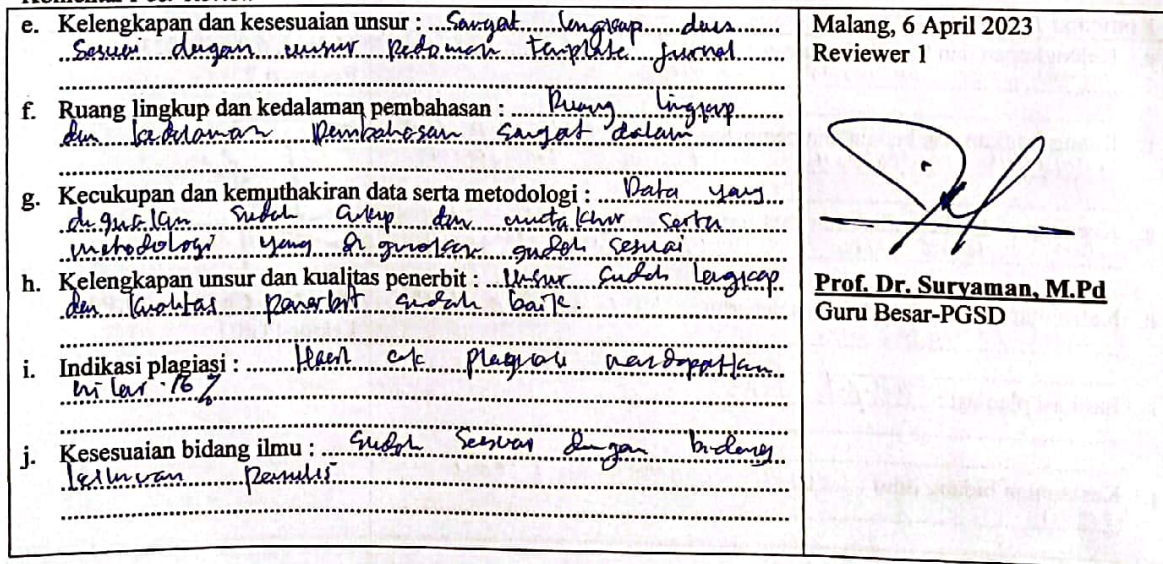 e. Kelengkapan dan kesesuaian unsur : Sangat lengkap dan
Sesuai dengan unsur Pedoman Template jurnal
f. Ruang lingkup dan kedalaman pembahasan : Ruang lingkup
dan kedalaman Pembahasan Sangat dalam
g. Kecukupan dan kemuthakiran data serta metodologi : Data yang
digunakan Sudah cukup dan mutakhir Serta
metodologi yang digunakan sudah sesuai
h. Kelengkapan unsur dan kualitas penerbit : Unsur sudah lengkap
dan kualitas penerbit sudah baik.
i. Indikasi plagiasi : Hasil cek plagiasi mendapatkan
nilai 16 %
j. Kesesuaian bidang ilmu : Sudah Sesuai dengan bidang
keilmuan Penulis
Malang, 6 April 2023
Reviewer 1
Prof. Dr. Suryaman, M.Pd
Guru Besar-PGSD